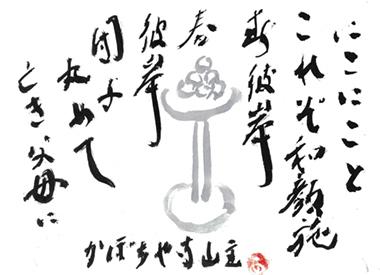 にこにこと
これぞ和顔施
お彼岸
春
彼岸
団子
丸めて
亡き父母に
かぼちゃ寺山主